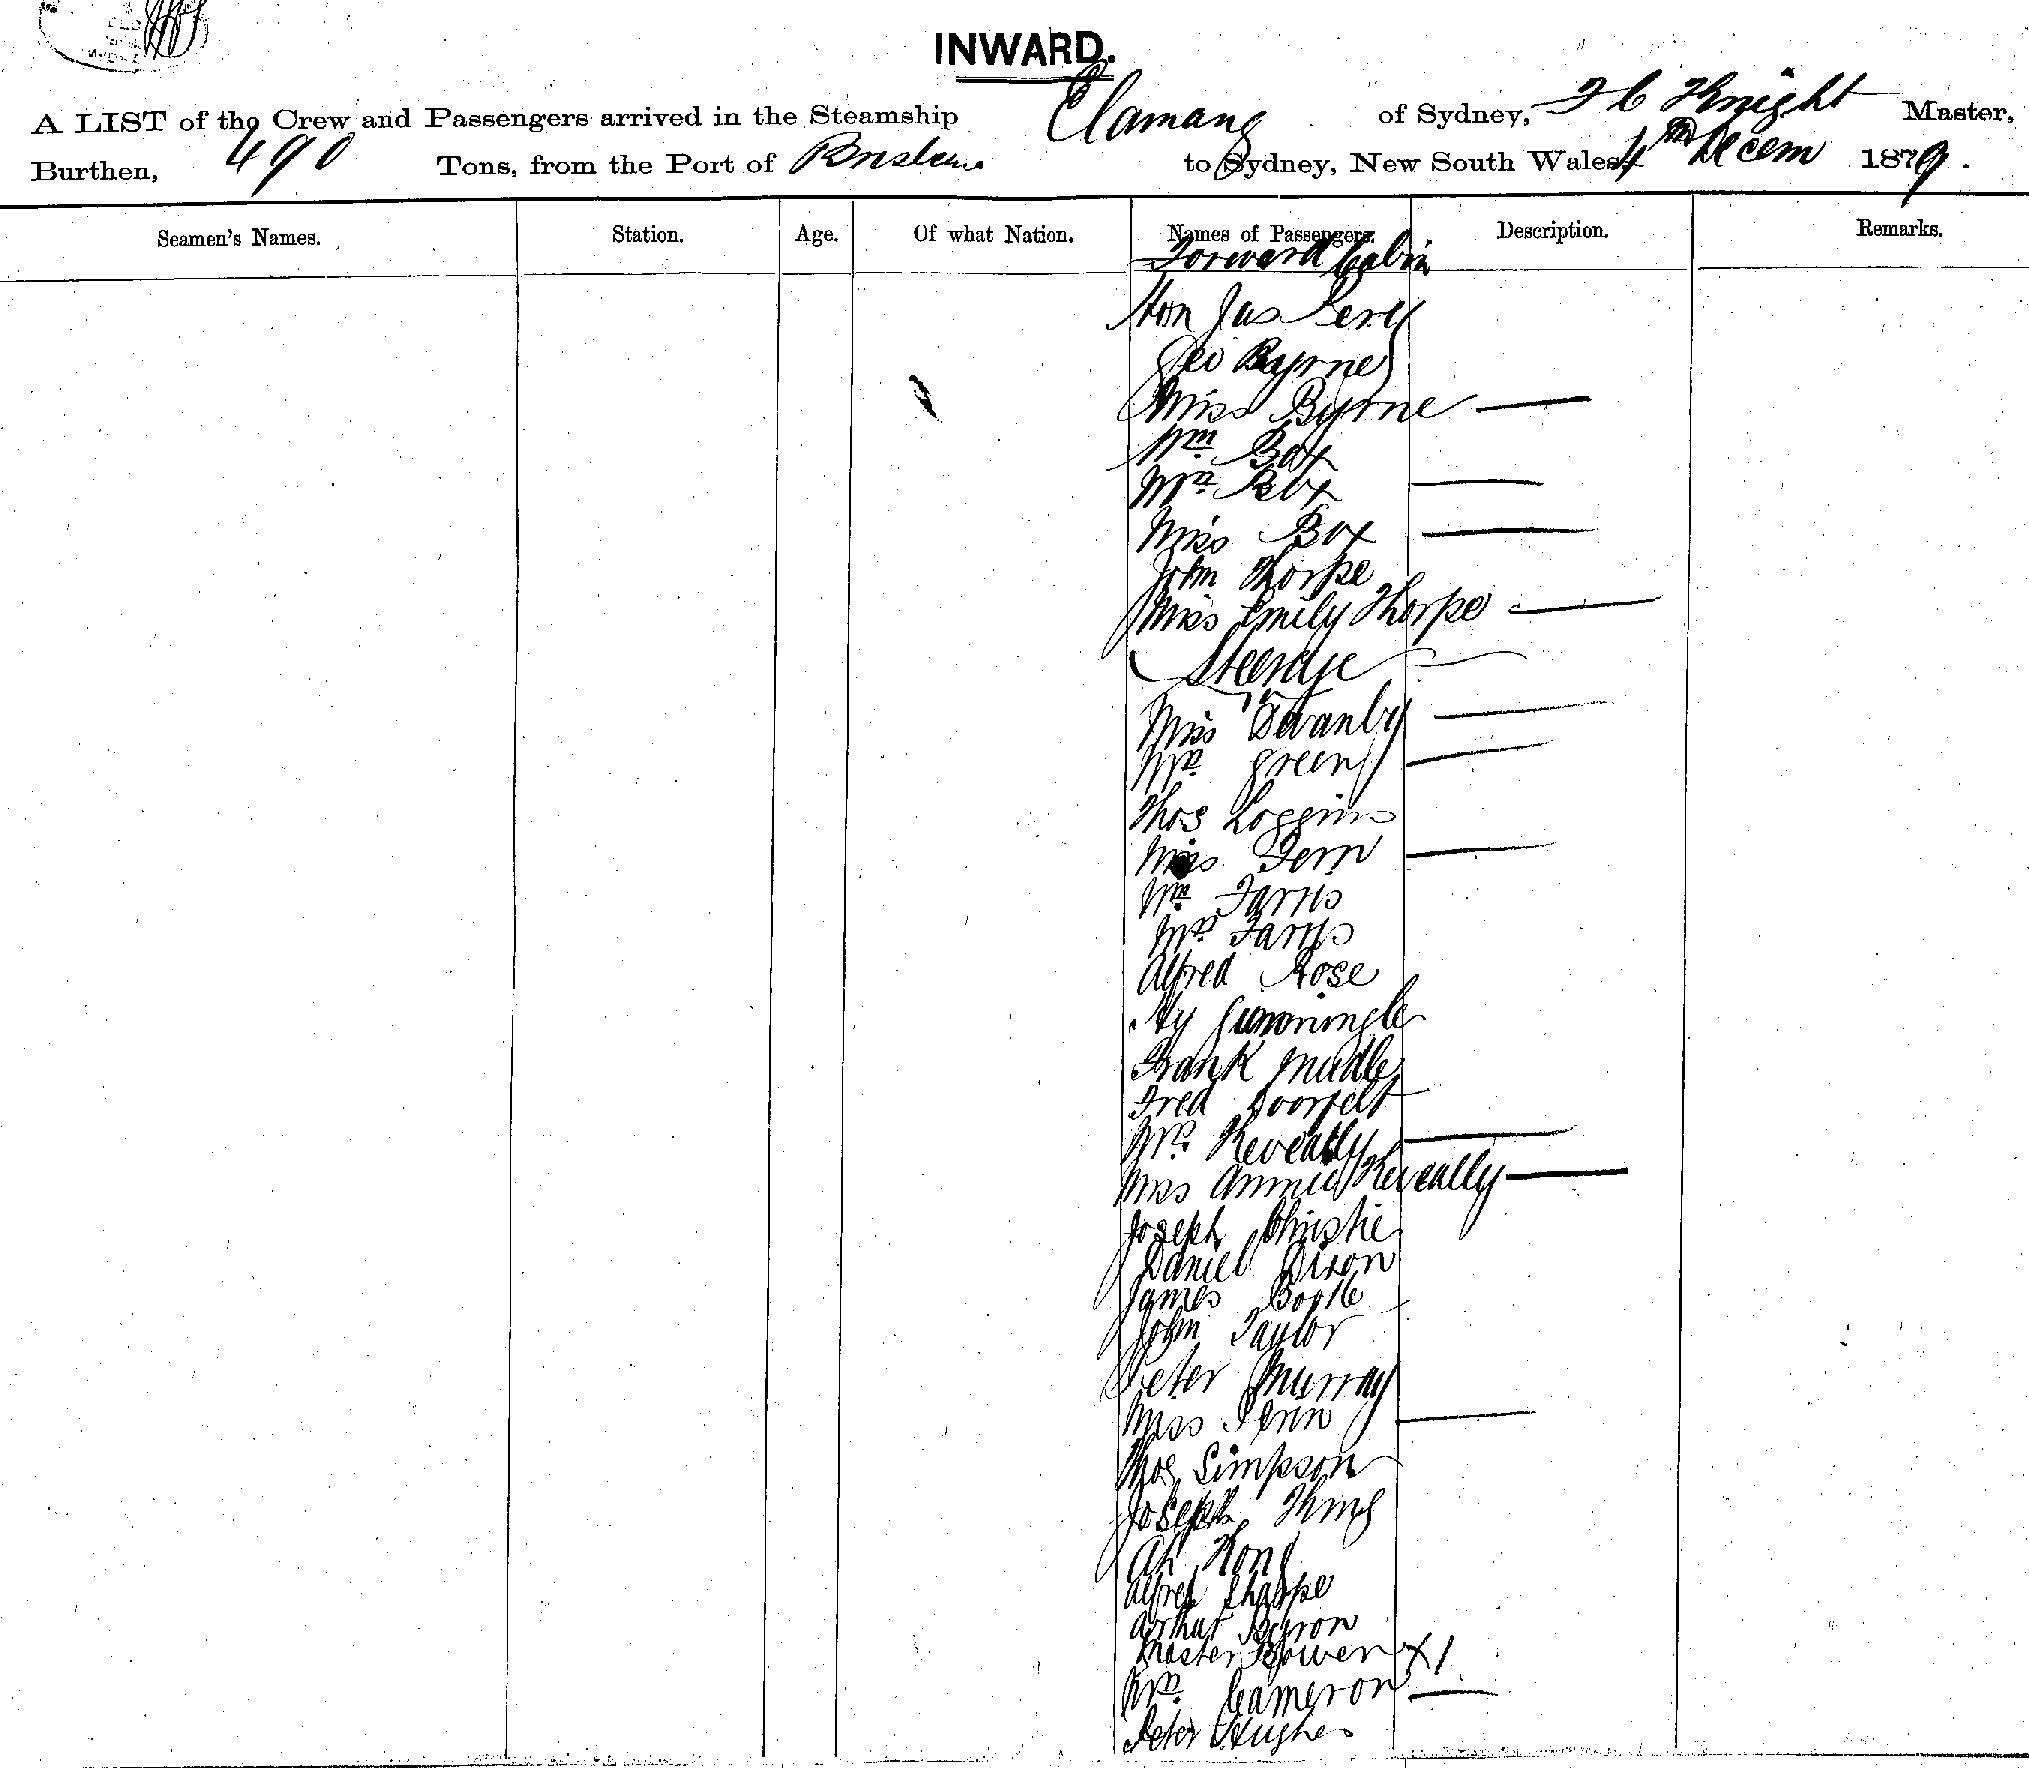 INWARD.
A LIST of the Crew and Passengers arrived in the Steamship Elamang of Sydney, Knight Master,
Burthen, 490 Tons, from the Port of Brisbane to Sydney, New South Wales, 4th Decem 1879.
Seamen's Names. Station. Age. Of what Nation. Names of Passengers. Description. Remarks.
Forward Cabin
Hon Jas
Geo Byrne
Miss Byrne —
Wm Box
Mrs Box —
Miss Box —
John Thorpe
Miss Emily Thorpe —
Steerage
Miss —
Mrs Green —
Thos Loggins
Miss Fern —
Wm Farris
Mrs Farris
Alfred Rose
Hy
Frank
Fred
Mrs Keveally —
Miss Annie Keveally —
Joseph Christie
Daniel Dixon
James Boyle
John Taylor
Peter Murray
Miss Penn —
Thos Simpson
Joseph King
Ah Kong
Alfred Sharpe
Arthur Byron
Master Bowen X 1
Mrs Cameron —
Peter Hughes